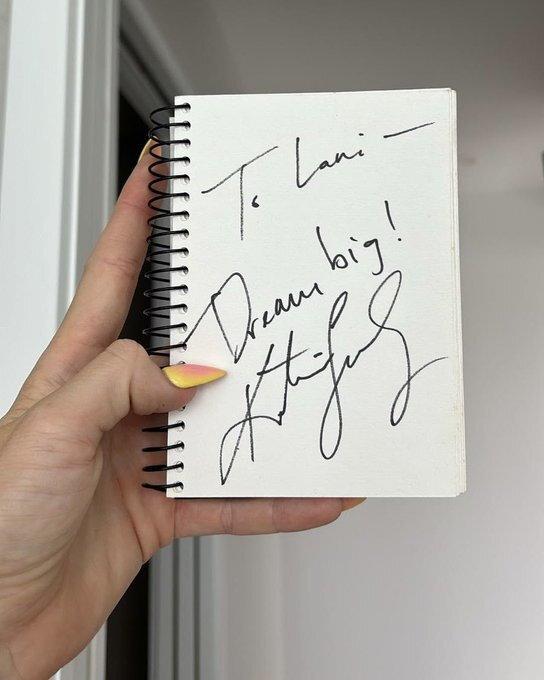 To Lani —
Dream big!